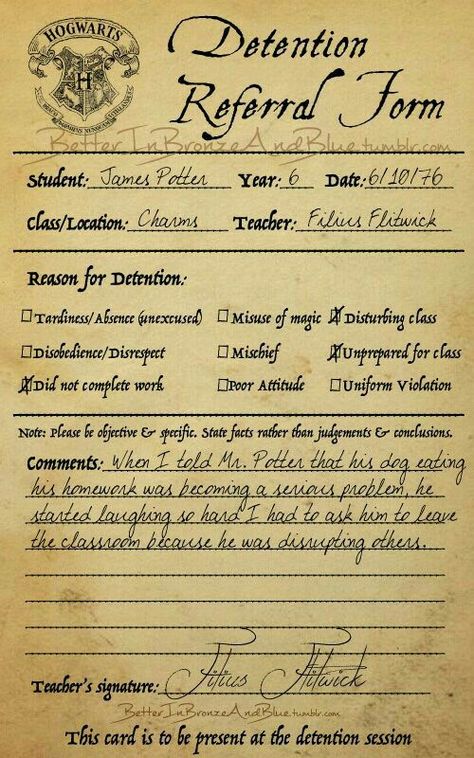 HOGWARTS
Detention
Referral Form
BetterInBronzeAndBlue.tumblr.com
Student: James Potter Year: 6 Date: 6/10/76
Class/Location: Charms Teacher: Filius Flitwick
Reason for Detention:
Tardiness/Absence (unexcused) Misuse of magic X Disturbing class
Disobedience/Disrespect Mischief X Unprepared for class
X Did not complete work Poor Attitude Uniform Violation
Note: Please be objective & specific. State facts rather than judgements & conclusions.
Comments: When I told Mr. Potter that his dog eating
his homework was becoming a serious problem, he
started laughing so hard I had to ask him to leave
the classroom because he was disrupting others.
Teacher's signature: Filius Flitwick
BetterInBronzeAndBlue.tumblr.com
This card is to be present at the detention session